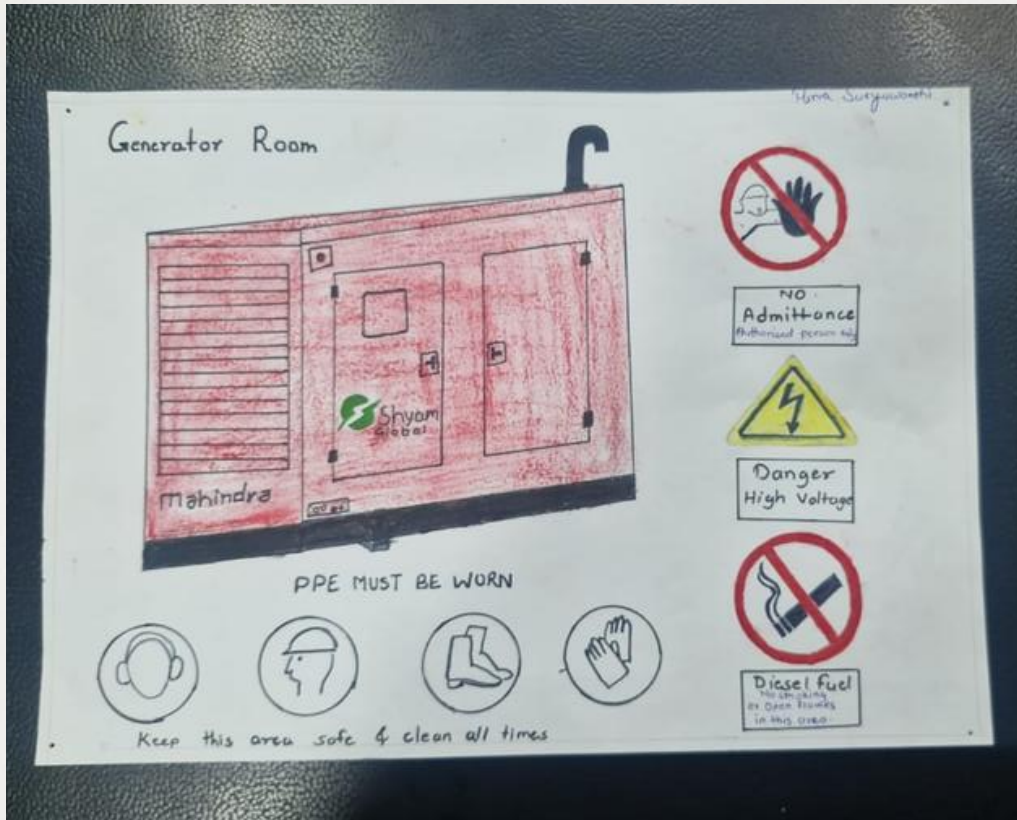 Generator Room
Shyam
Global
Mahindra
PPE MUST BE WORN
Keep this area safe & clean all times
NO
Admittance
Authorised person only
Danger
High Voltage
Diesel fuel
No smoking
or Open flames
in this area